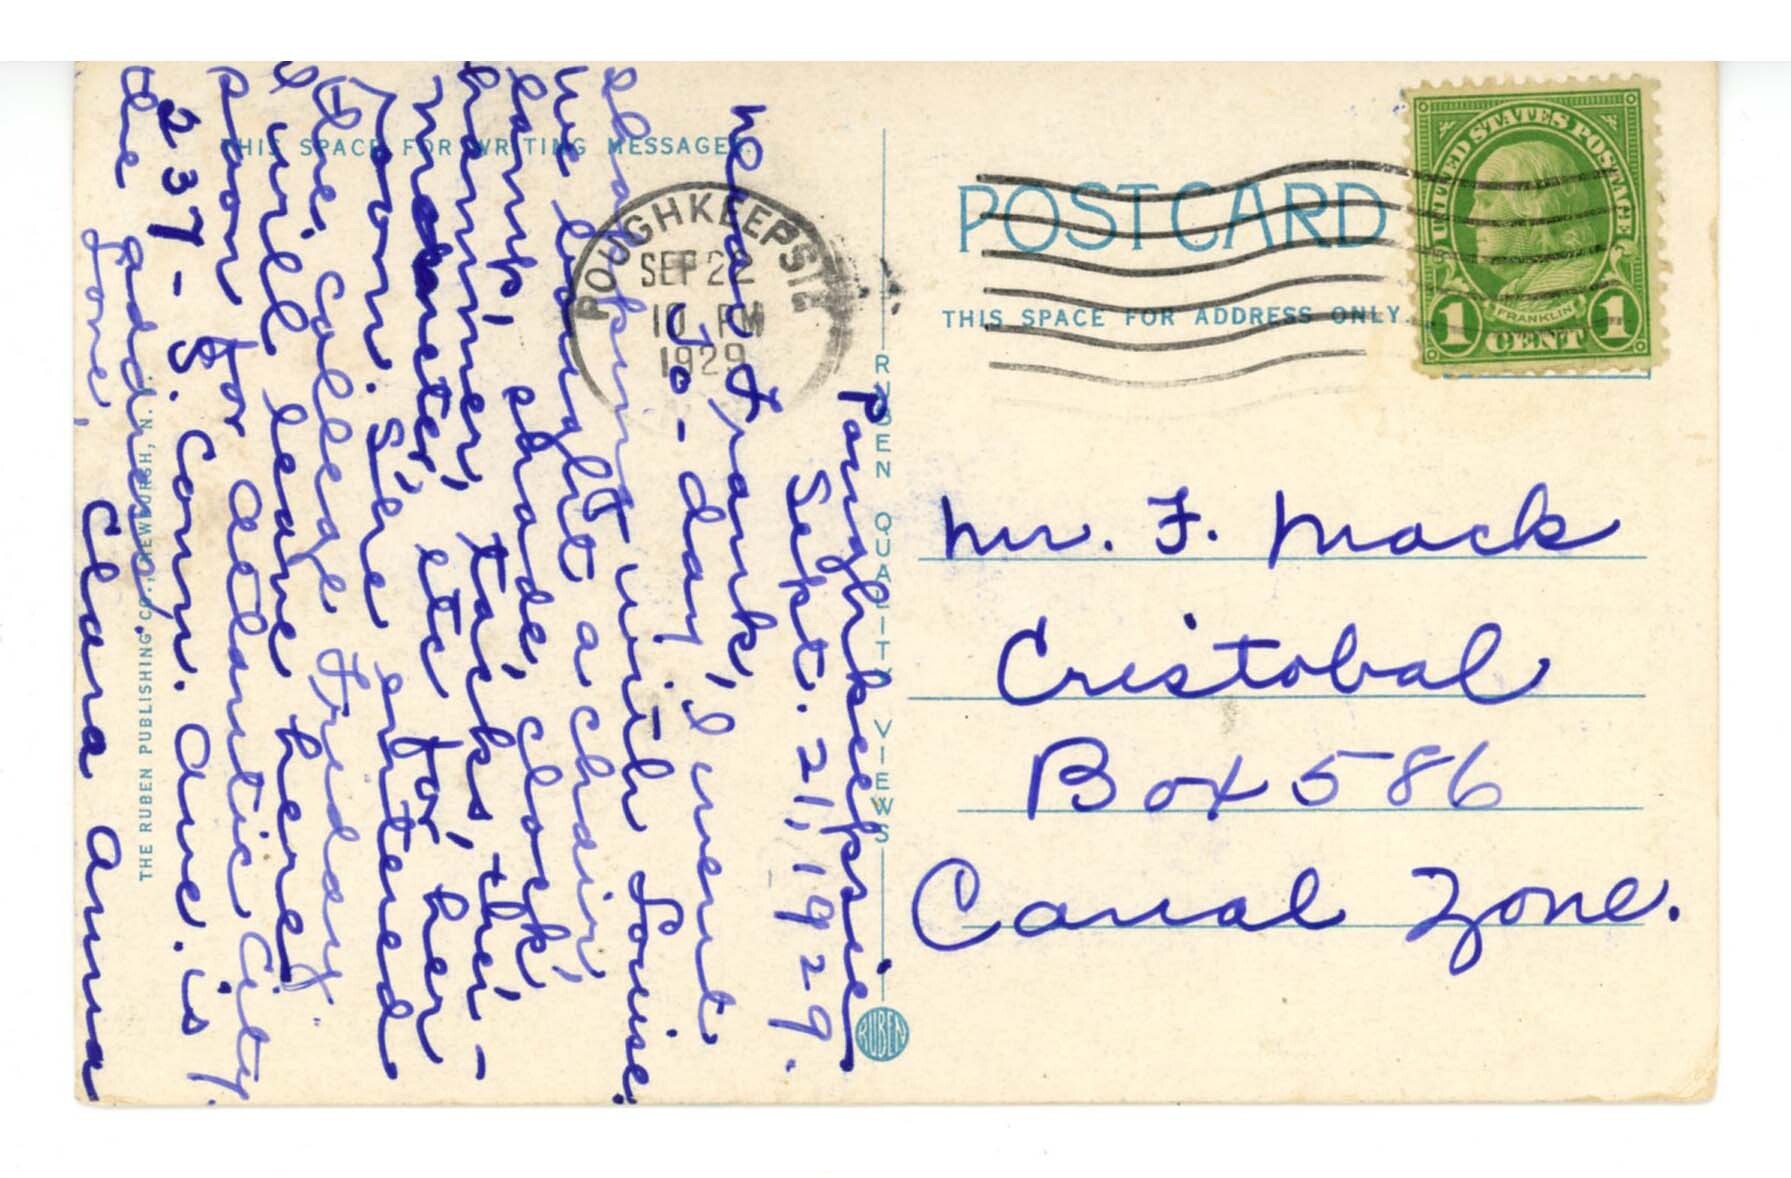 THIS SPACE FOR WRITING MESSAGES.
Poughkeepsie
Sept. 21, 1929.
Dear Frank, I went
to-day
shopping with Louise.
We bought a chair,
lamp, shade, clock,
hammer, tacks, ther-
mometer, etc for her
room. She entered
the College Friday.
I will leave here
soon for Atlantic City.
237 - S. Conn. Ave. is
the address.
Love, Clara Anna
THE RUBEN PUBLISHING CO., NEWBURGH, N. Y.
POUGHKEEPSIE
SEP 22
10 PM
1929
RUBEN QUALITY VIEWS
RUBEN
POST CARD
THIS SPACE FOR ADDRESS ONLY
UNITED STATES POSTAGE
FRANKLIN
1 CENT 1
Mr. F. Mack
Cristobal
Box 586
Canal Zone.